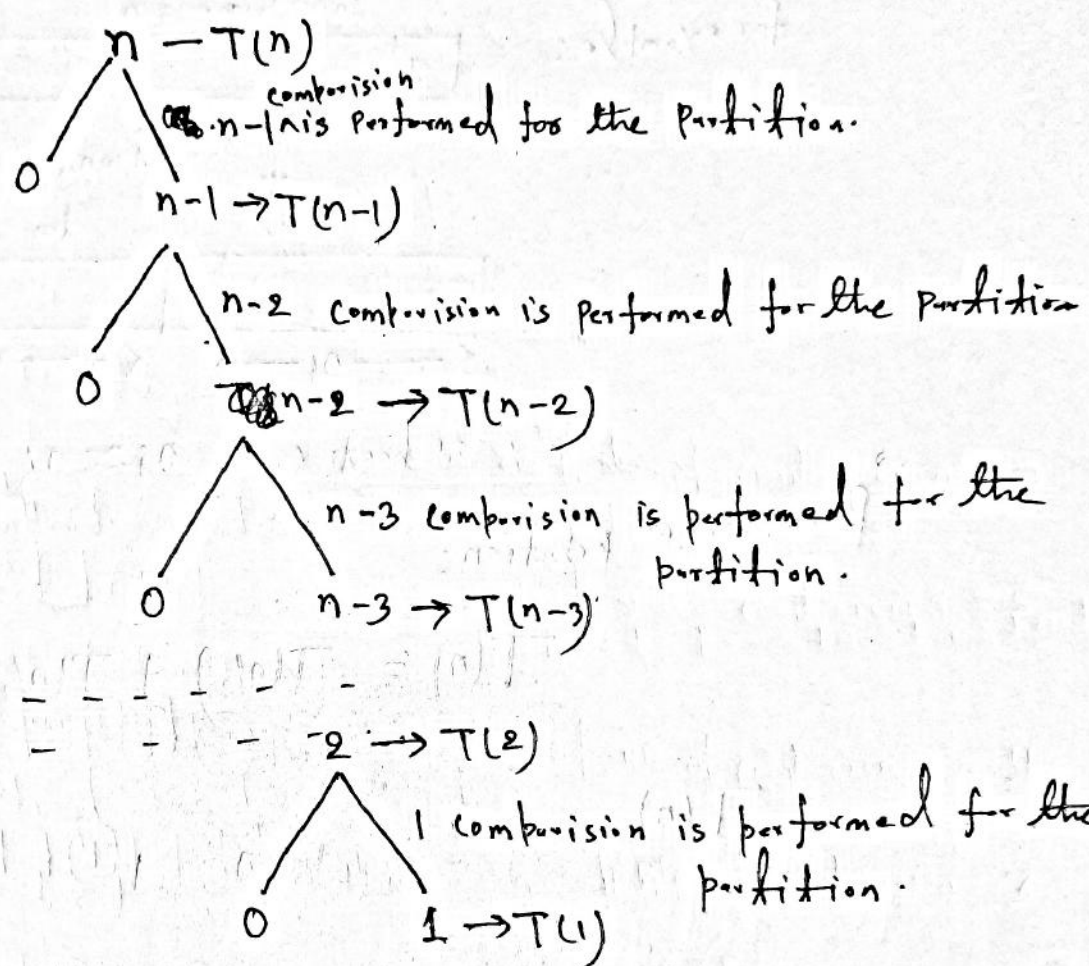 n — T(n)
comparision
n-1 ^ is Performed for the Partition.
0
n-1 → T(n-1)
n-2 comparision is performed for the Partition
0
n-2 → T(n-2)
n-3 comparision is performed for the
partition.
0
n-3 → T(n-3)
- - - - - -
- - - -2 → T(2)
1 comparision is performed for the
partition.
0
1 → T(1)